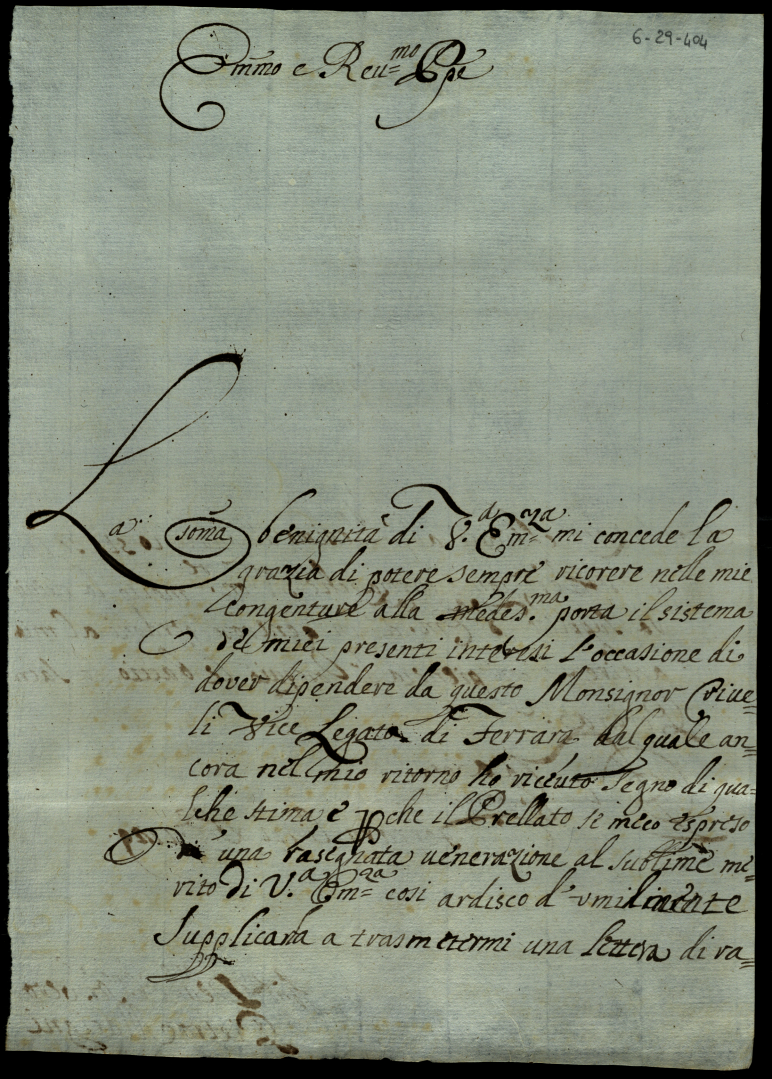 6-29-404
Emmo e Reu=mo Ppe
La soma benignità di V.a Em=za mi concede la
grazia di potere sempre ricorere nelle mie
congenture alla medes.ma porta il sistema
de miei presenti interesi l'occasione di
dover dipendere da questo Monsignor Crive=
li Vice Legato di Ferrara dal quale an=
cora nel mio ritorno ho riceuto segno di qua=
lche stima e pche il Prellato si meco espreso
di una rasegnata uenerazione al sublime me=
rito di V.a Em=za cosi ardisco d'umilmente
Supplicarla a trasmetermi una lettera di ra=